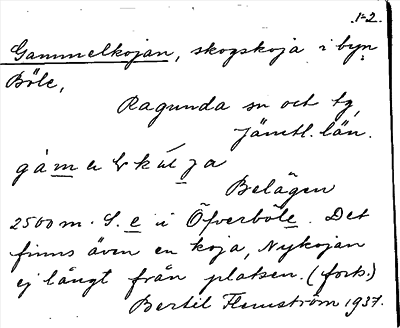 1-2.
Gammelkojan, skogskoja i byn
Böle,
Ragunda sn och tg,
Jämtl. län.
Belägen
2500 m. S. e i Öfverböle. Det
finns även en koja, Nykojan
ej långt från platsen. (forts.)
Bertil Flemström 1937.